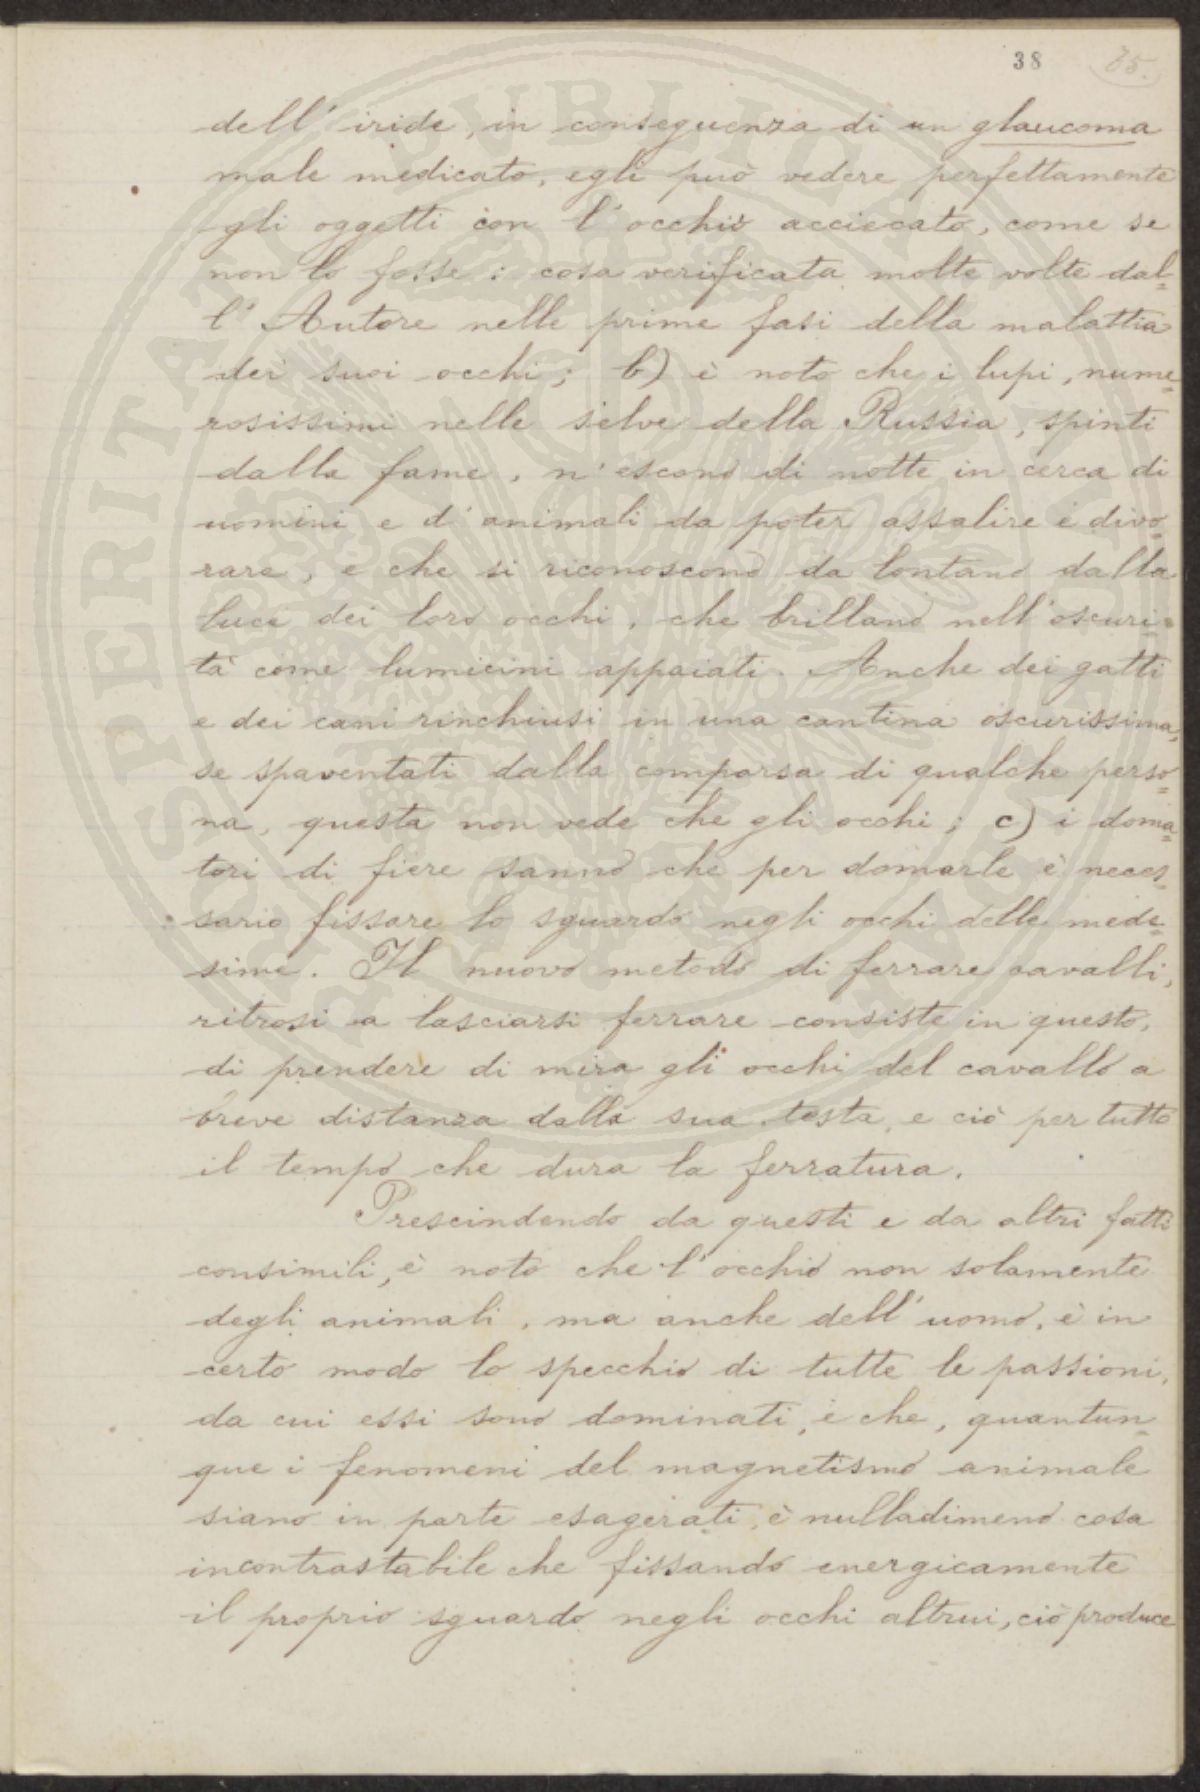 38 35.
dell' iride, in conseguenza di un glaucoma
male medicato, egli può vedere perfettamente
gli oggetti con l' occhio acciecato, come se
non lo fosse: cosa verificata molte volte dal=
l' Autore nelle prime fasi della malattia
dei suoi occhi; b) è noto che i lupi, nume=
rosissimi nelle selve della Russia, spinti
dalla fame, n' escono di notte in cerca di
uomini e d' animali da poter assalire e divo=
rare, e che si riconoscono da lontano dalla
luce dei loro occhi, che brillano nell' oscuri=
tà come lumicini appaiati. Anche dei gatti
e dei cani rinchiusi in una cantina oscurissima,
se spaventati dalla comparsa di qualche perso=
na, questa non vede che gli occhi; c) i doma=
tori di fiere sanno che per domarle è neces=
sario fissare lo sguardo negli occhi delle mede=
sime. Il nuovo metodo di ferrare cavalli,
ritrosi a lasciarsi ferrare consiste in questo,
di prendere di mira gli occhi del cavallo a
breve distanza dalla sua testa, e ciò per tutto
il tempo che dura la ferratura.
Prescindendo da questi e da altri fatti
consimili, è noto che l' occhio non solamente
degli animali, ma anche dell' uomo, è in
certo modo lo specchio di tutte le passioni,
da cui essi sono dominati, e che, quantun=
que i fenomeni del magnetismo animale
siano in parte esagerati, è nulladimeno cosa
incontrastabile che fissando energicamente
il proprio sguardo negli occhi altrui, ciò produce